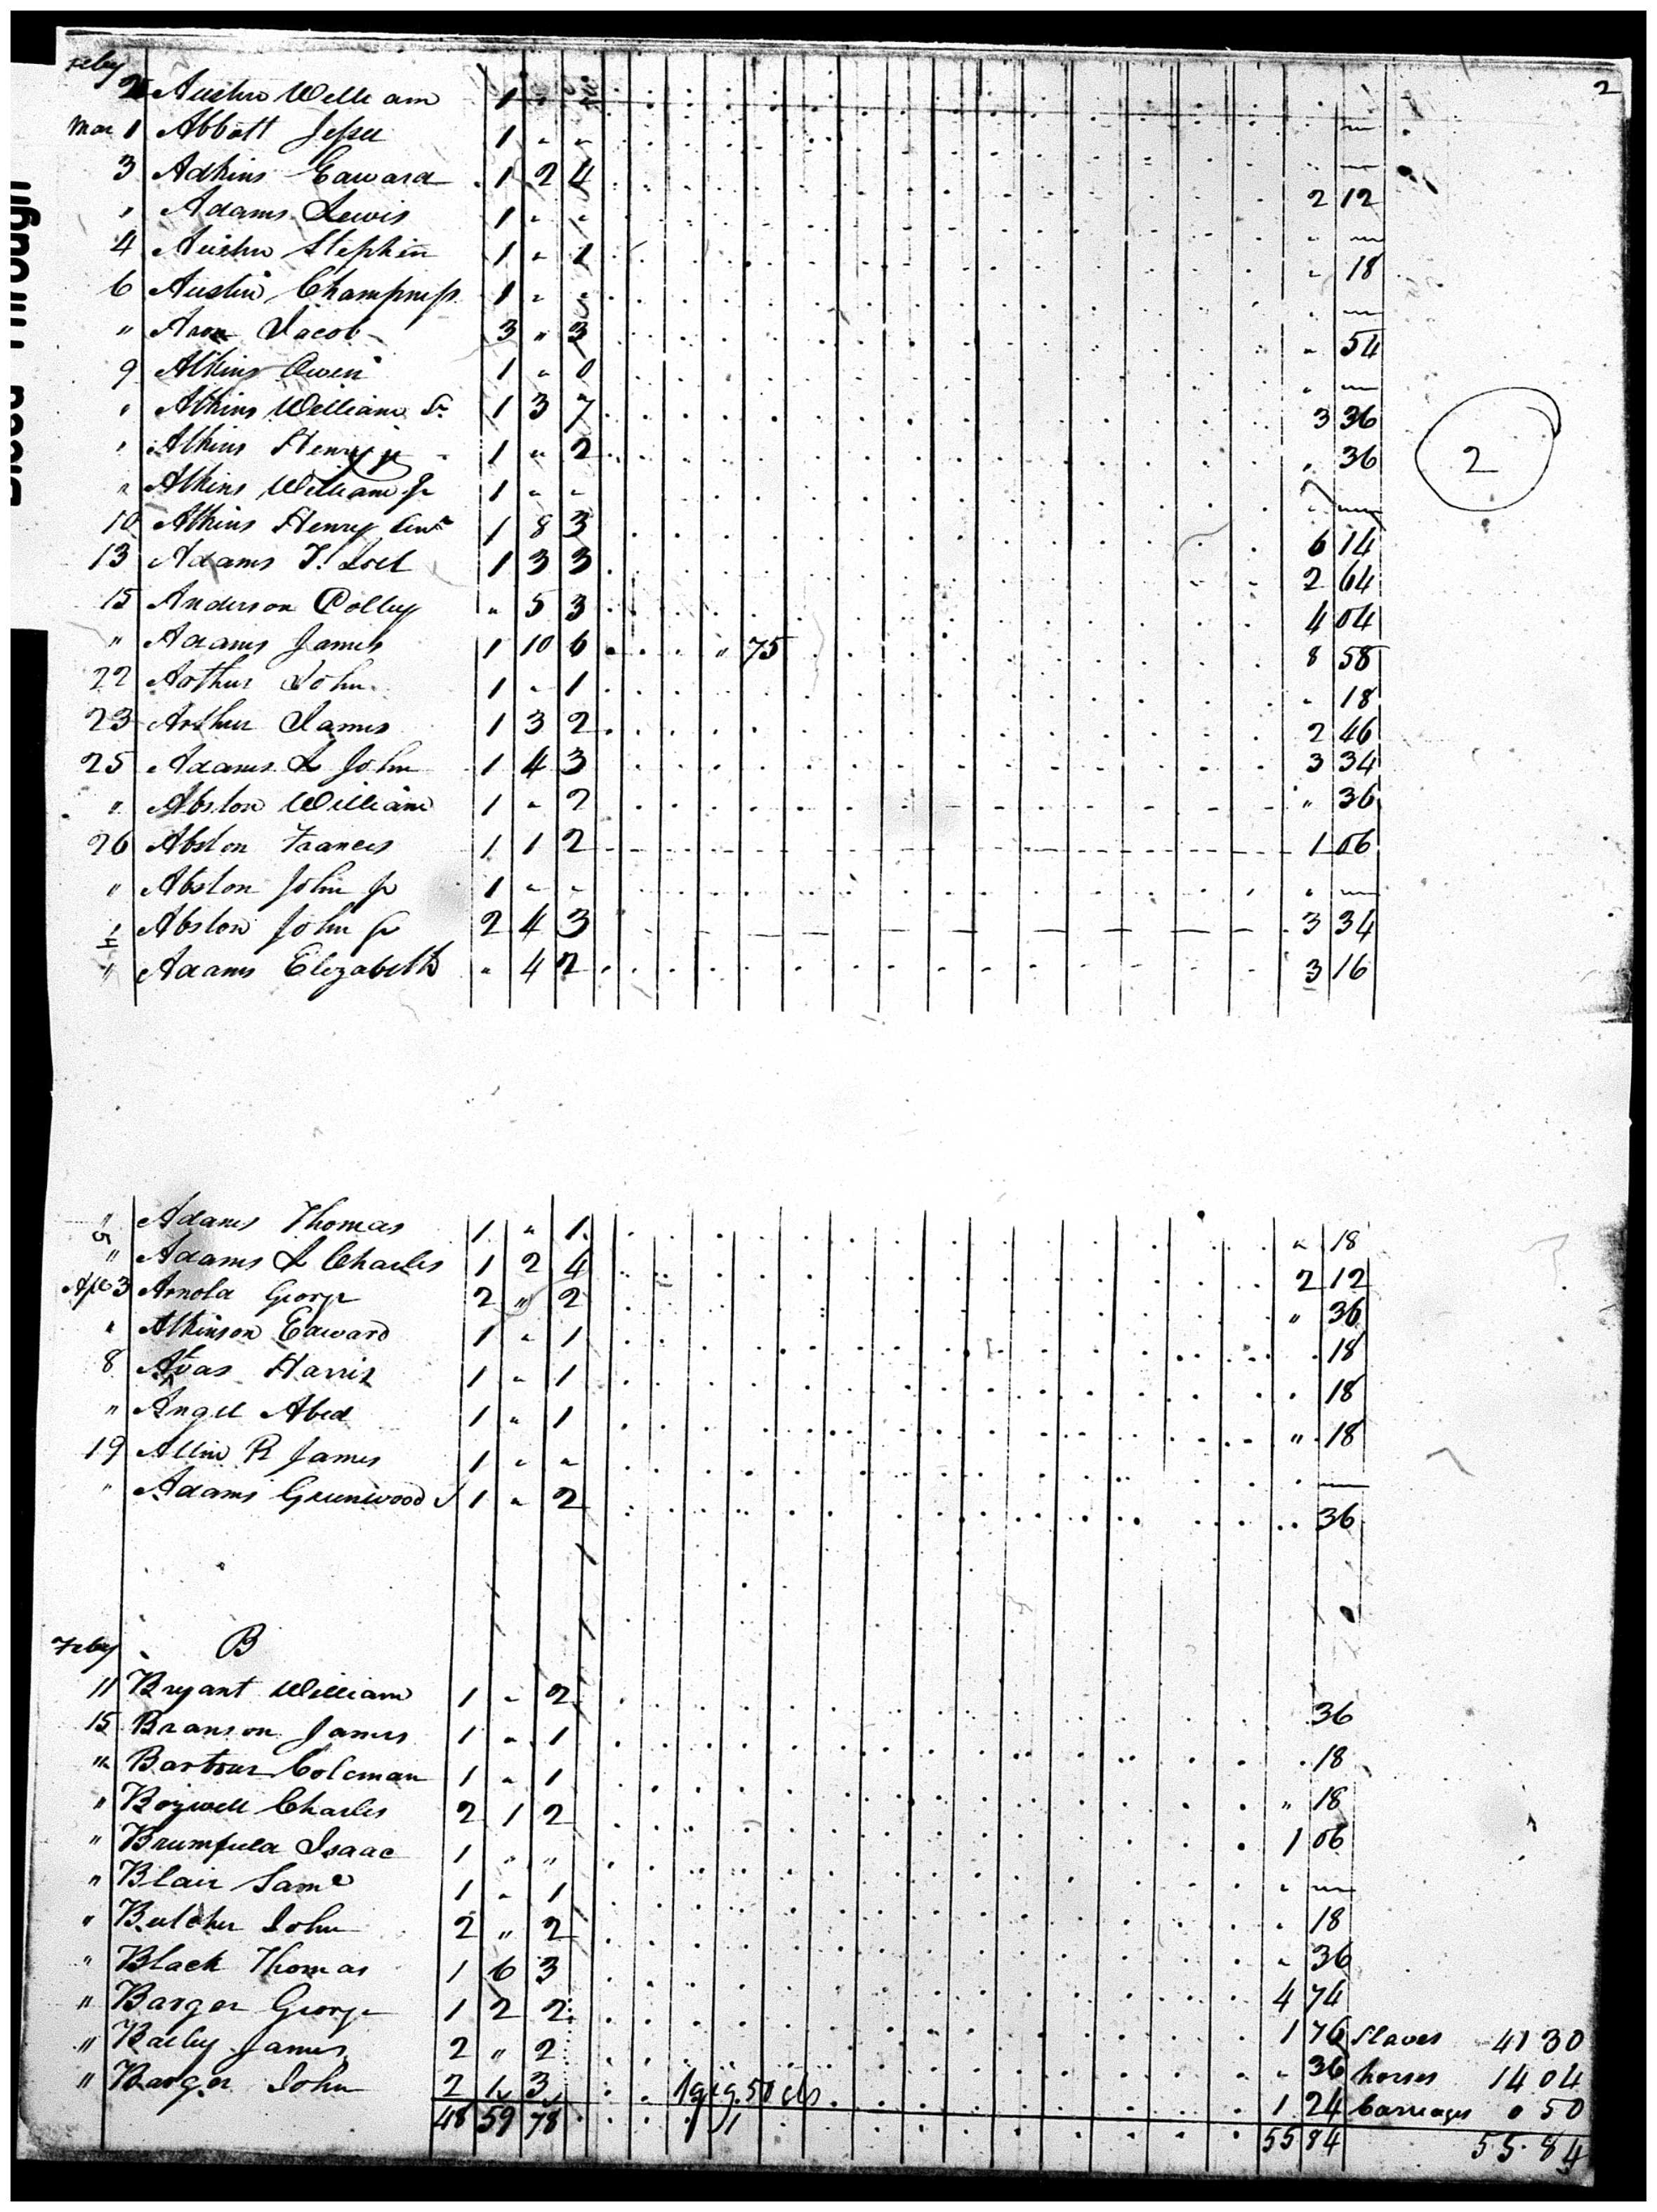 2
Feby
25 Austin William 1 " "
Mar 1 Abbott Jesse 1 " " —
3 Adkins Edward 1 2 4 2 12
" Adams Lewis 1 " " " —
4 Austin Stephen 1 " 1 " 18
6 Austin Champness 1 " " " —
" Aron Jacob 3 " 3 " 54
9 Atkins Owen 1 " 0 " —
" Atkins William Sr 1 3 7 3 36
" Atkins Henry jr 1 " 2 " 36
2
" Atkins William Jr 1 " " " —
10 Atkins Henry Senr 1 8 3 6 14
13 Adams T. Joel 1 3 3 2 64
15 Anderson Polley " 5 3 4 04
" Adams James 1 10 6 " 75 8 58
22 Arthur John 1 " 1 " 18
23 Arthur James 1 3 2 2 46
25 Adams L John 1 4 3 3 34
" Abston William 1 " 2 " 36
26 Abston Frances 1 1 2 1 06
" Abston John Jr 1 " " " —
" Abston John Sr 2 4 3 3 34
" Adams Elizabeth " 4 2 3 16
" Adams Thomas 1 " 1 " 18
" Adams L Charles 1 2 4 2 12
Apl 3 Arnold George 2 " 2 " 36
" Atkinson Edward 1 " 1 18
8 Harris 1 " 1 18
" Angel Abed 1 " 1 " 18
19 Allin R James 1 " " —
" Adams Greenwood J 1 " 2 36
Feby B
11 Bryant William 1 " 2 36
15 Branson James 1 " 1 18
" Barbour Coleman 1 " 1 " 18
" Bozwell Charles 2 1 2 1 06
" Brumfield Isaac 1 " " " —
" Blair Saml 1 " 1 " 18
" Butcher John 2 " 2 " 36
" Black Thomas 1 6 3 4 74
" Barger George 1 2 2 1 76 Slaves 41 30
" Bailey James 2 " 2 " 36 horses 14 04
" Barger John 2 1 3 1 gig 50 cts 1 24 Carriages 0 50
48 59 78 1 55 84 55.84